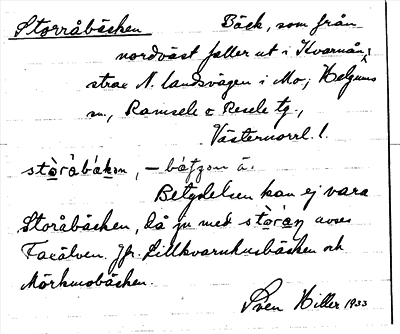 Storråbäcken Bäck, som från
nordväst faller ut i Kvarnån,
strax N. landsvägen i Mo; Helgums
sn, Ramsele o Resele tg.,
Västernorrl. l.
stòråbäkan, – bätjan ä.
Betydelsen kan ej vara
Storåbäcken, då ju med stòràn avses
Faxälven. Jfr. Lillkvarnhusbäcken och
Mörkmobäcken.
Sven Hiller 1933